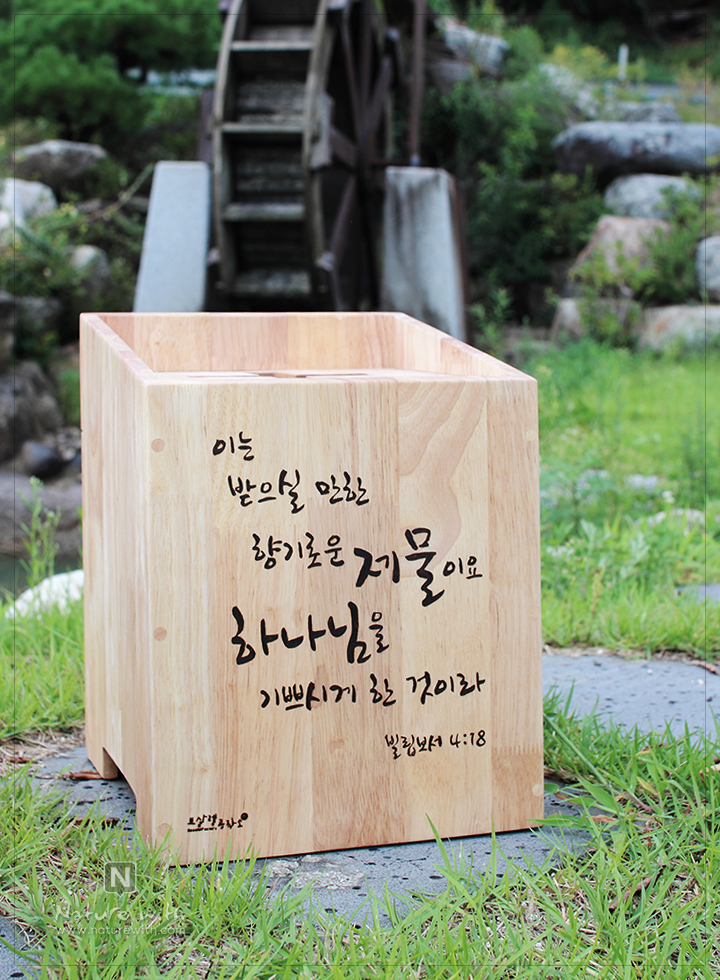 이는
받으실 만한
향기로운 제물이요
하나님을
기쁘시게 한 것이라
빌립보서 4:18
N
Nature with
www.naturewith.com